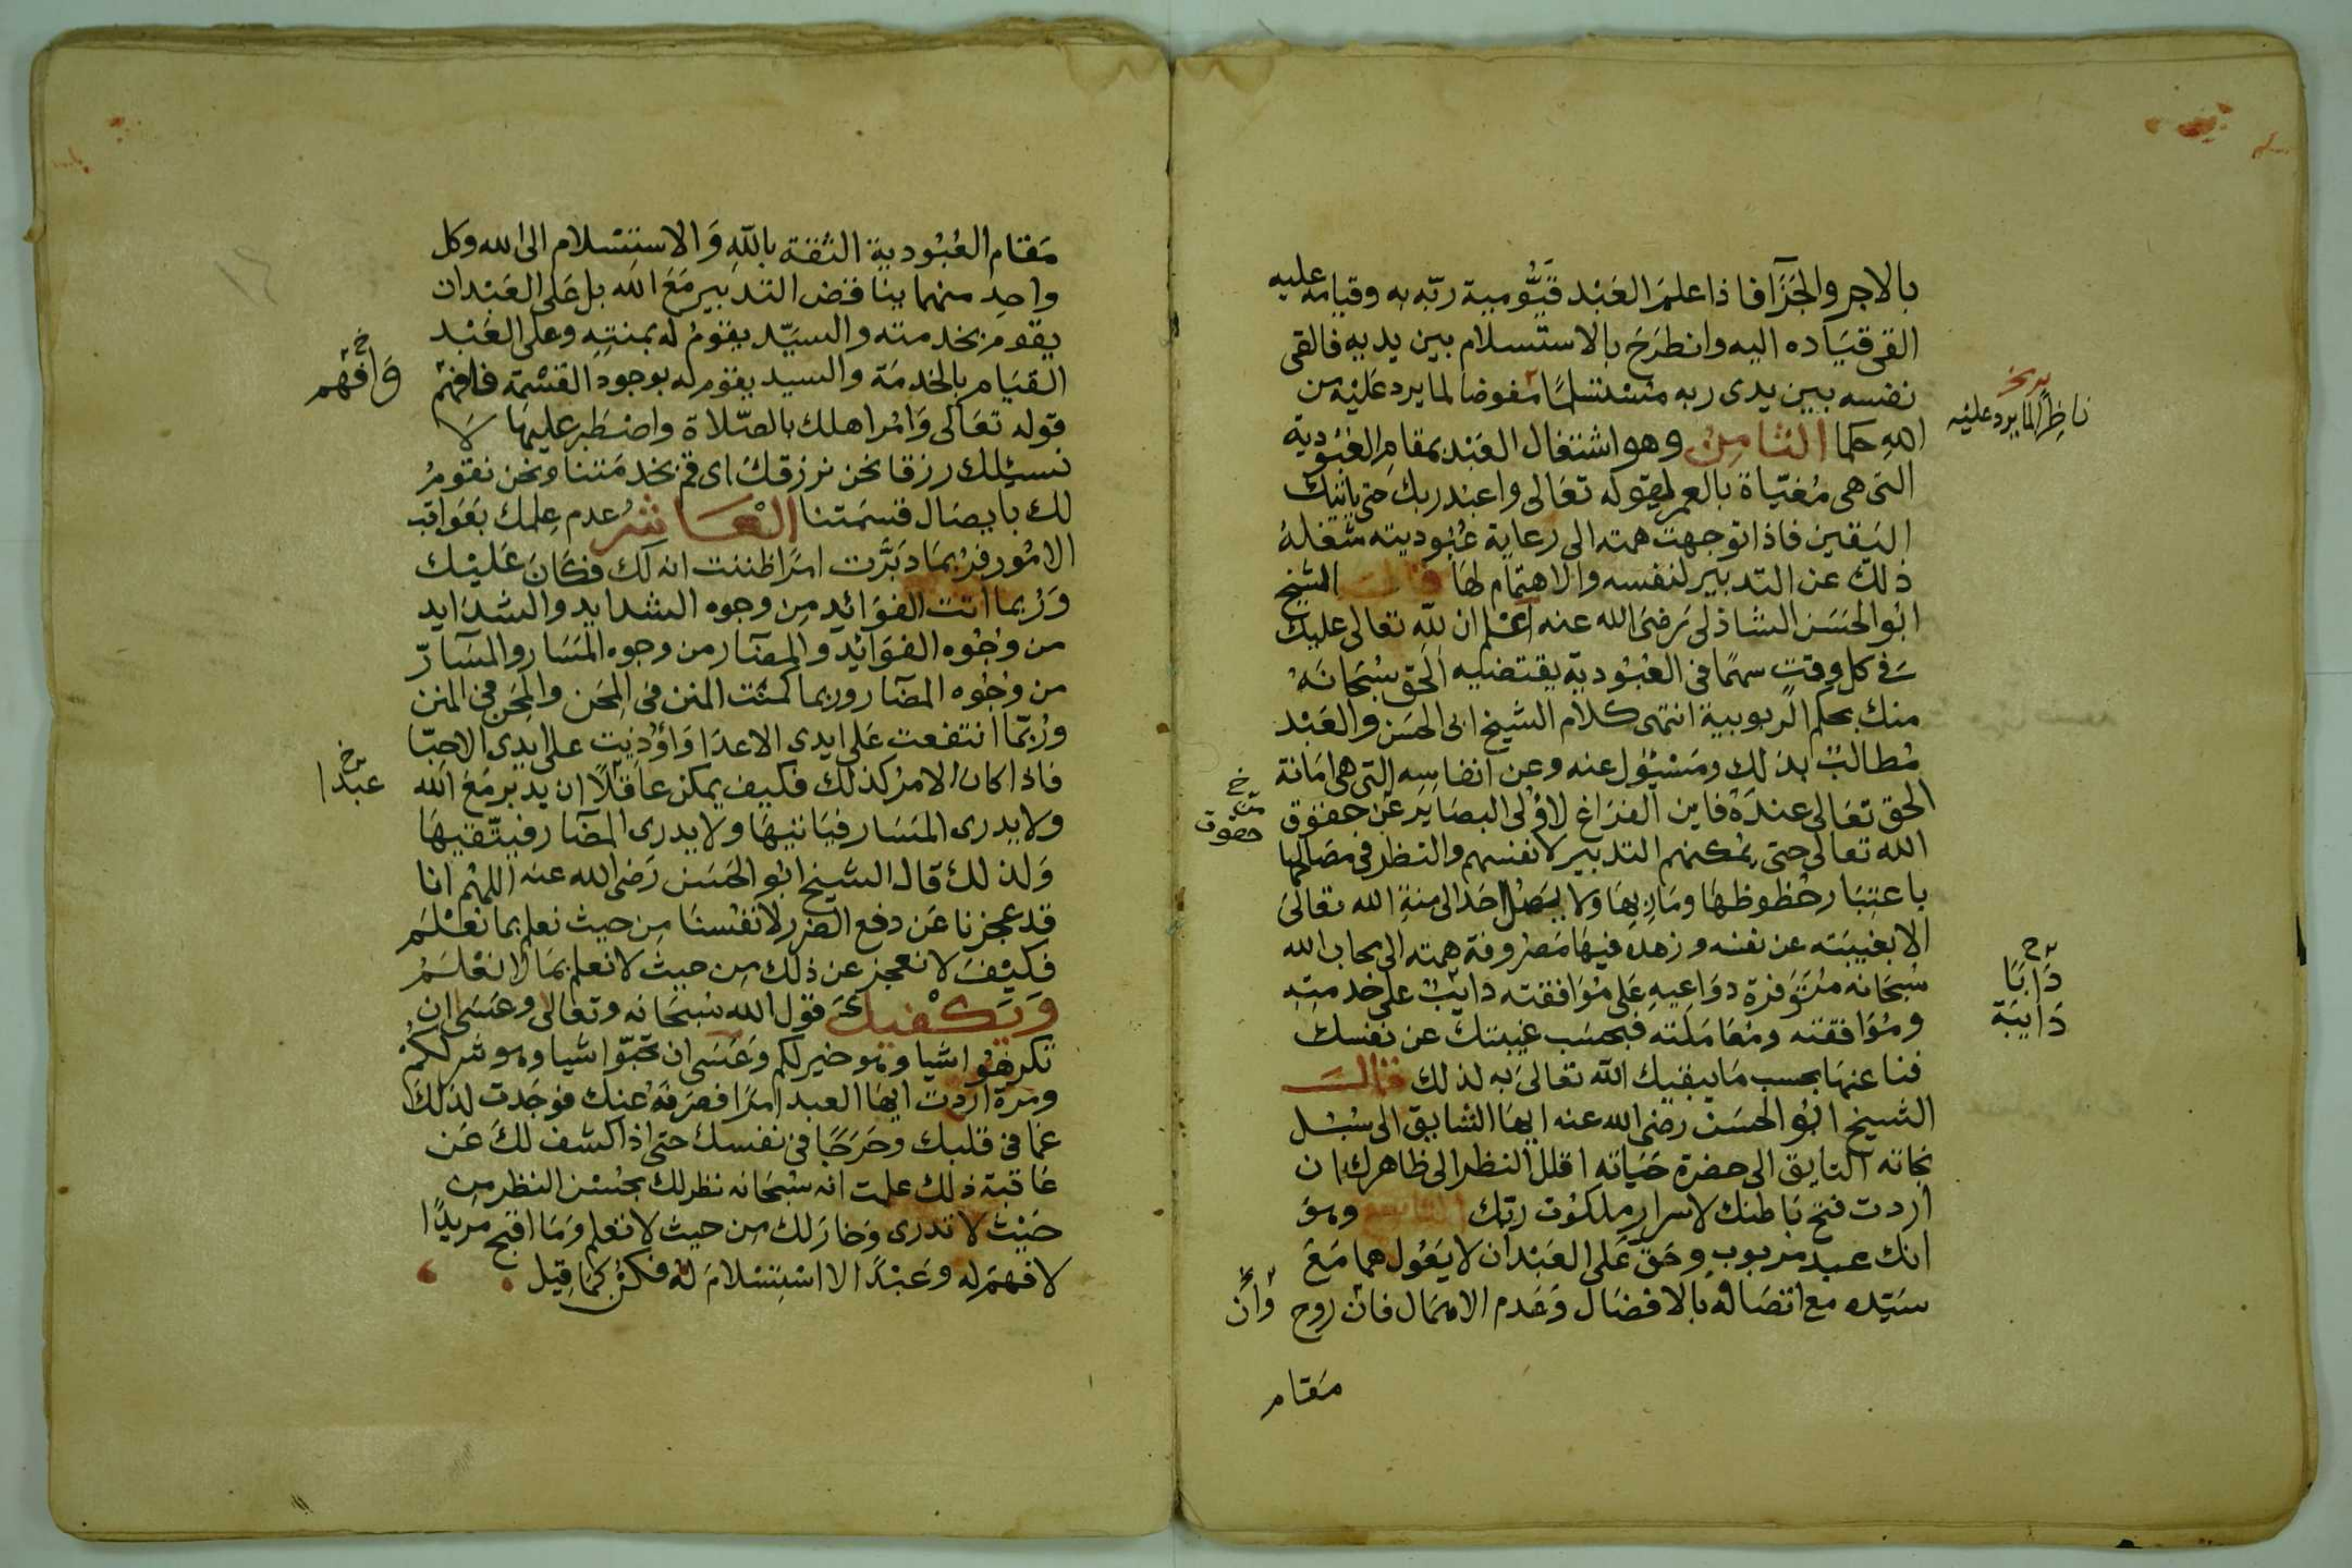 بالاجر والجَزَآ فاذا علمَ العَبْد قَيُّومية ربّه به وقيامه عليه
القى قيَاده اليه وانطرَحَ بالاستسلام بين يديه فالقى
نفسه بين يدى ربه مسْتسْلمًا مفوضا لما يرد عَليْه من
ناظِرًا لما يرد عليْه
اللهِ حكما الثامِنُ وهو اشتغال العَبْد بمقامِ العُبُوديّة
التى هى مُغيّاة بالعمر لقوله تعَالى واعبُد ربك حتى ياتيك
اليَقين فاذا توجهت همته الى رعاية عُبُوديته شغلهُ
ذلك عن التدبير لنفسه والاهتمام لهَا قالَ الشيخ
ابُو الحَسَن الشاذلى رَضىَ الله عنه اعْلم ان لله تعالى عليك
فى كل وقتٍ سهمًا فى العُبُوديّة يقتضيه الحَق سُبْحَانَهُ
منك بحكم الربوبية انتهى كلام الشيخ ابى الحسَن والعَبْد
مُطالبٌ بذلك ومَسْئول عنه وعن انفاسِه التى هى امَانة
الحق تعَالى عندَهُ فاين الفرَاغ لاوُلى البصَاير عَن حقوق
عن حقوق
الله تعالى حتى يمكنهم التدبير لانفسهم والنظر فى مصَالحها
باعتبَار حُظوظهَا ومَاربهَا ولا يَصلُ احَد الى منةِ الله تعَالىَ
الا بغيبَته عن نفسه وزهدهِ فيهَا مَصْروفة همته الى محاب الله
سُبحَانه مُتَوَفرة دوَاعيهِ عَلى مُوَافقته دايبٌ على خدمتِه
دَابًا
دَايبَة
ومُوَافقته ومُعَامَلته فبحسَب غيبتك عن نفسك
فنا عنهَا بحسب مَا يبقيك الله تعالىَ به لذلك قالَ
الشيخ ابُو الحَسَن رضىَ الله عنه ايهَا السَّابق الى سُبُل
نجاته التايق الى حضرة حَيَاته اقلل النظر الى ظاهرك ان
اردت فتح بَاطنك لاسرار ملكوت ربّك التاسع وهوَ
انك عبد مربوب وحَق عَلى العَبْد ان لا يَعُول هما مَعَ
سَيّده مع اتصَافه بالافضَال وَعَدم الاهمَال فان روح
وَأن
مقام
مَقام العُبُودية الثقة باللهِ وَالاستِسْلام الى الله وكل
واحدٍ منهما يناقض التدبير مَعَ الله بل عَلى العَبْد ان
يقوم بخدمته والسيّد يقومُ له بمنتِه وعلى العَبْد
القيَام بالخدمَة والسيد يقوم له بوجود القسْمة فافهمْ
وَافهم
قوله تعَالى وَامُر اهلك بالصّلاة واصْطبر عليهَا لا
نسئلك رزقا نحن نرزقك اى قم بخدمَتنا ونحن نقومُ
لك بايصَال قسمَتنا الْعَاشر عدم عِلمك بعَوَاقب
الامُور فرُبمَا دَبَّرت امرًا ظننت انه لك فكانَ عَليْك
وَرُبما اتت الفوَائد مِن وجوه الشدايد والشدَايد
من وُجُوه الفوَائد والمضَار من وجوه المسَار والمسَارّ
من وُجُوه المضَار وربما كمنَت المنن فى المِحَن والمِحَن فى المنن
ورُبّمَا انتفعت عَلى ايدى الاعدَا وَاوُذيت على ايدى الاحبّا
فاذا كان الامرُ كذلك فكيف يمكن عَاقلًا ان يدَبر مَعَ الله
عبدا
ولا يدرى المَسَار فيَاتيهَا ولا يدرى المضَار فيتّقيهَا
وَلذلك قال الشيخ ابُو الحَسَن رَضىَ الله عنه اللهُم انا
قد عجزنا عَن دفع الضرر لانفُسنَا مِن حيث نعلم بما نعْلَم
فكيْفَ لا نعجز عن ذلك مِن حيث لا نعلم بمَا لا نعْلَمُ
وَيَكْفيك قول الله سُبحَانه وتعَالى وعَسَى ان
تكرهُوا شيا وهو خير لكم وَعَسَى ان تحبّوا شيا وهو شر لكمْ
ومَرة اردت ايهَا العبد امرًا فصَرفهُ عنك فوَجَدت لذلك
غما فى قلبك وحَرَجًا فى نفسك حتى اذا كشف لكَ عَن
عَاقبة ذلك علمت انه سُبحَانه نظر لك بحُسْن النظر مِن
حَيْث لا تدرى وَخارَ لك مِن حيث لا تعلم وَمَا اقبح مريدًا
لا فهمَ له وعَبْدًا لا استِسْلامَ لهُ فكنْ كما قيل